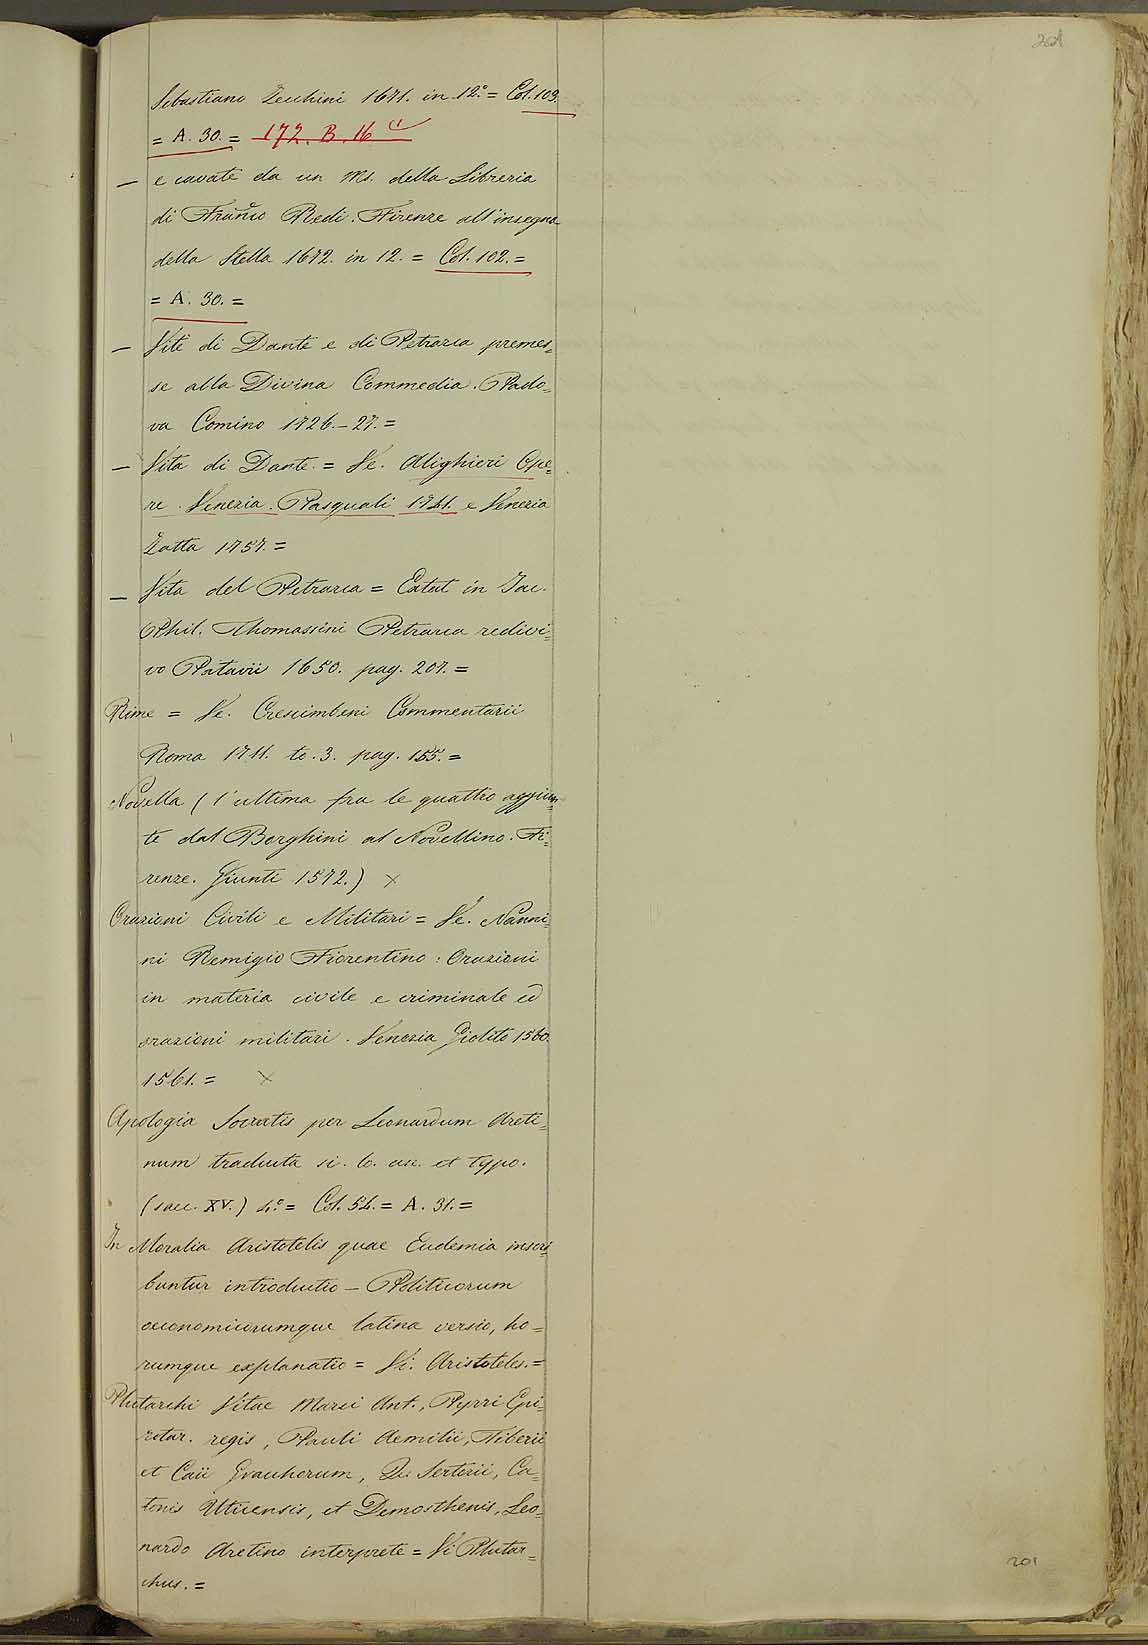 201
Sebastiano Zecchini 1671. in 12.° = Col. 103.
= A. 30. = 172. B. 16 (1
— e cavate da un Ms. della Libreria
di Franco Redi. Firenze all'insegna
della Stella 1672. in 12. = Col. 102. =
= A. 30. =
— Vite di Dante e di Petrarca premes=
se alla Divina Commedia. Pado=
va Comino 1726.-27. =
— Vita di Dante. = Ve. Alighieri Ope=
re. Venezia. Pasquali 1741. e Venezia
Zatta 1757. =
— Vita del Petrarca = Extat in Jac.
Phil. Thomassini Petrarca redivi=
vo Patavii 1650. pag. 207. =
Rime = Ve. Crescimbeni Commentarii
Roma 1711. to. 3. pag. 155. =
Novella (l'ultima fra le quattro aggiun=
te dal Borghini al Novellino. Fi=
renze. Giunti 1572.) ×
Orazioni Civili e Militari = Ve. Nanni=
ni Remigio Fiorentino: Orazioni
in materia civile e criminale ed
orazioni militari. Venezia Giolito 1560.
1561. = ×
Apologia Socratis per Leonardum Areti=
num traducta si. lo. an. et typo.
(saec. XV.) 4.° = Col. 54. = A. 31. =
In Moralia Aristotelis quae Eudemia inscri=
buntur introductio — Politicorum
oeconomicorumque latina versio, ho=
rumque explanatio = Vi. Aristoteles. =
Plutarchi Vitae Marci Ant., Pyrri Epi=
rotar. regis, Pauli Aemilii, Tiberii
et Caii Gracchorum, Q. Sertorii, Ca=
tonis Uticensis, et Demosthenis, Leo=
nardo Aretino interprete = Vi Plutar=
chus. =
201